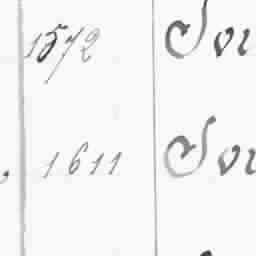 1572 Sou
, 1611 Sou